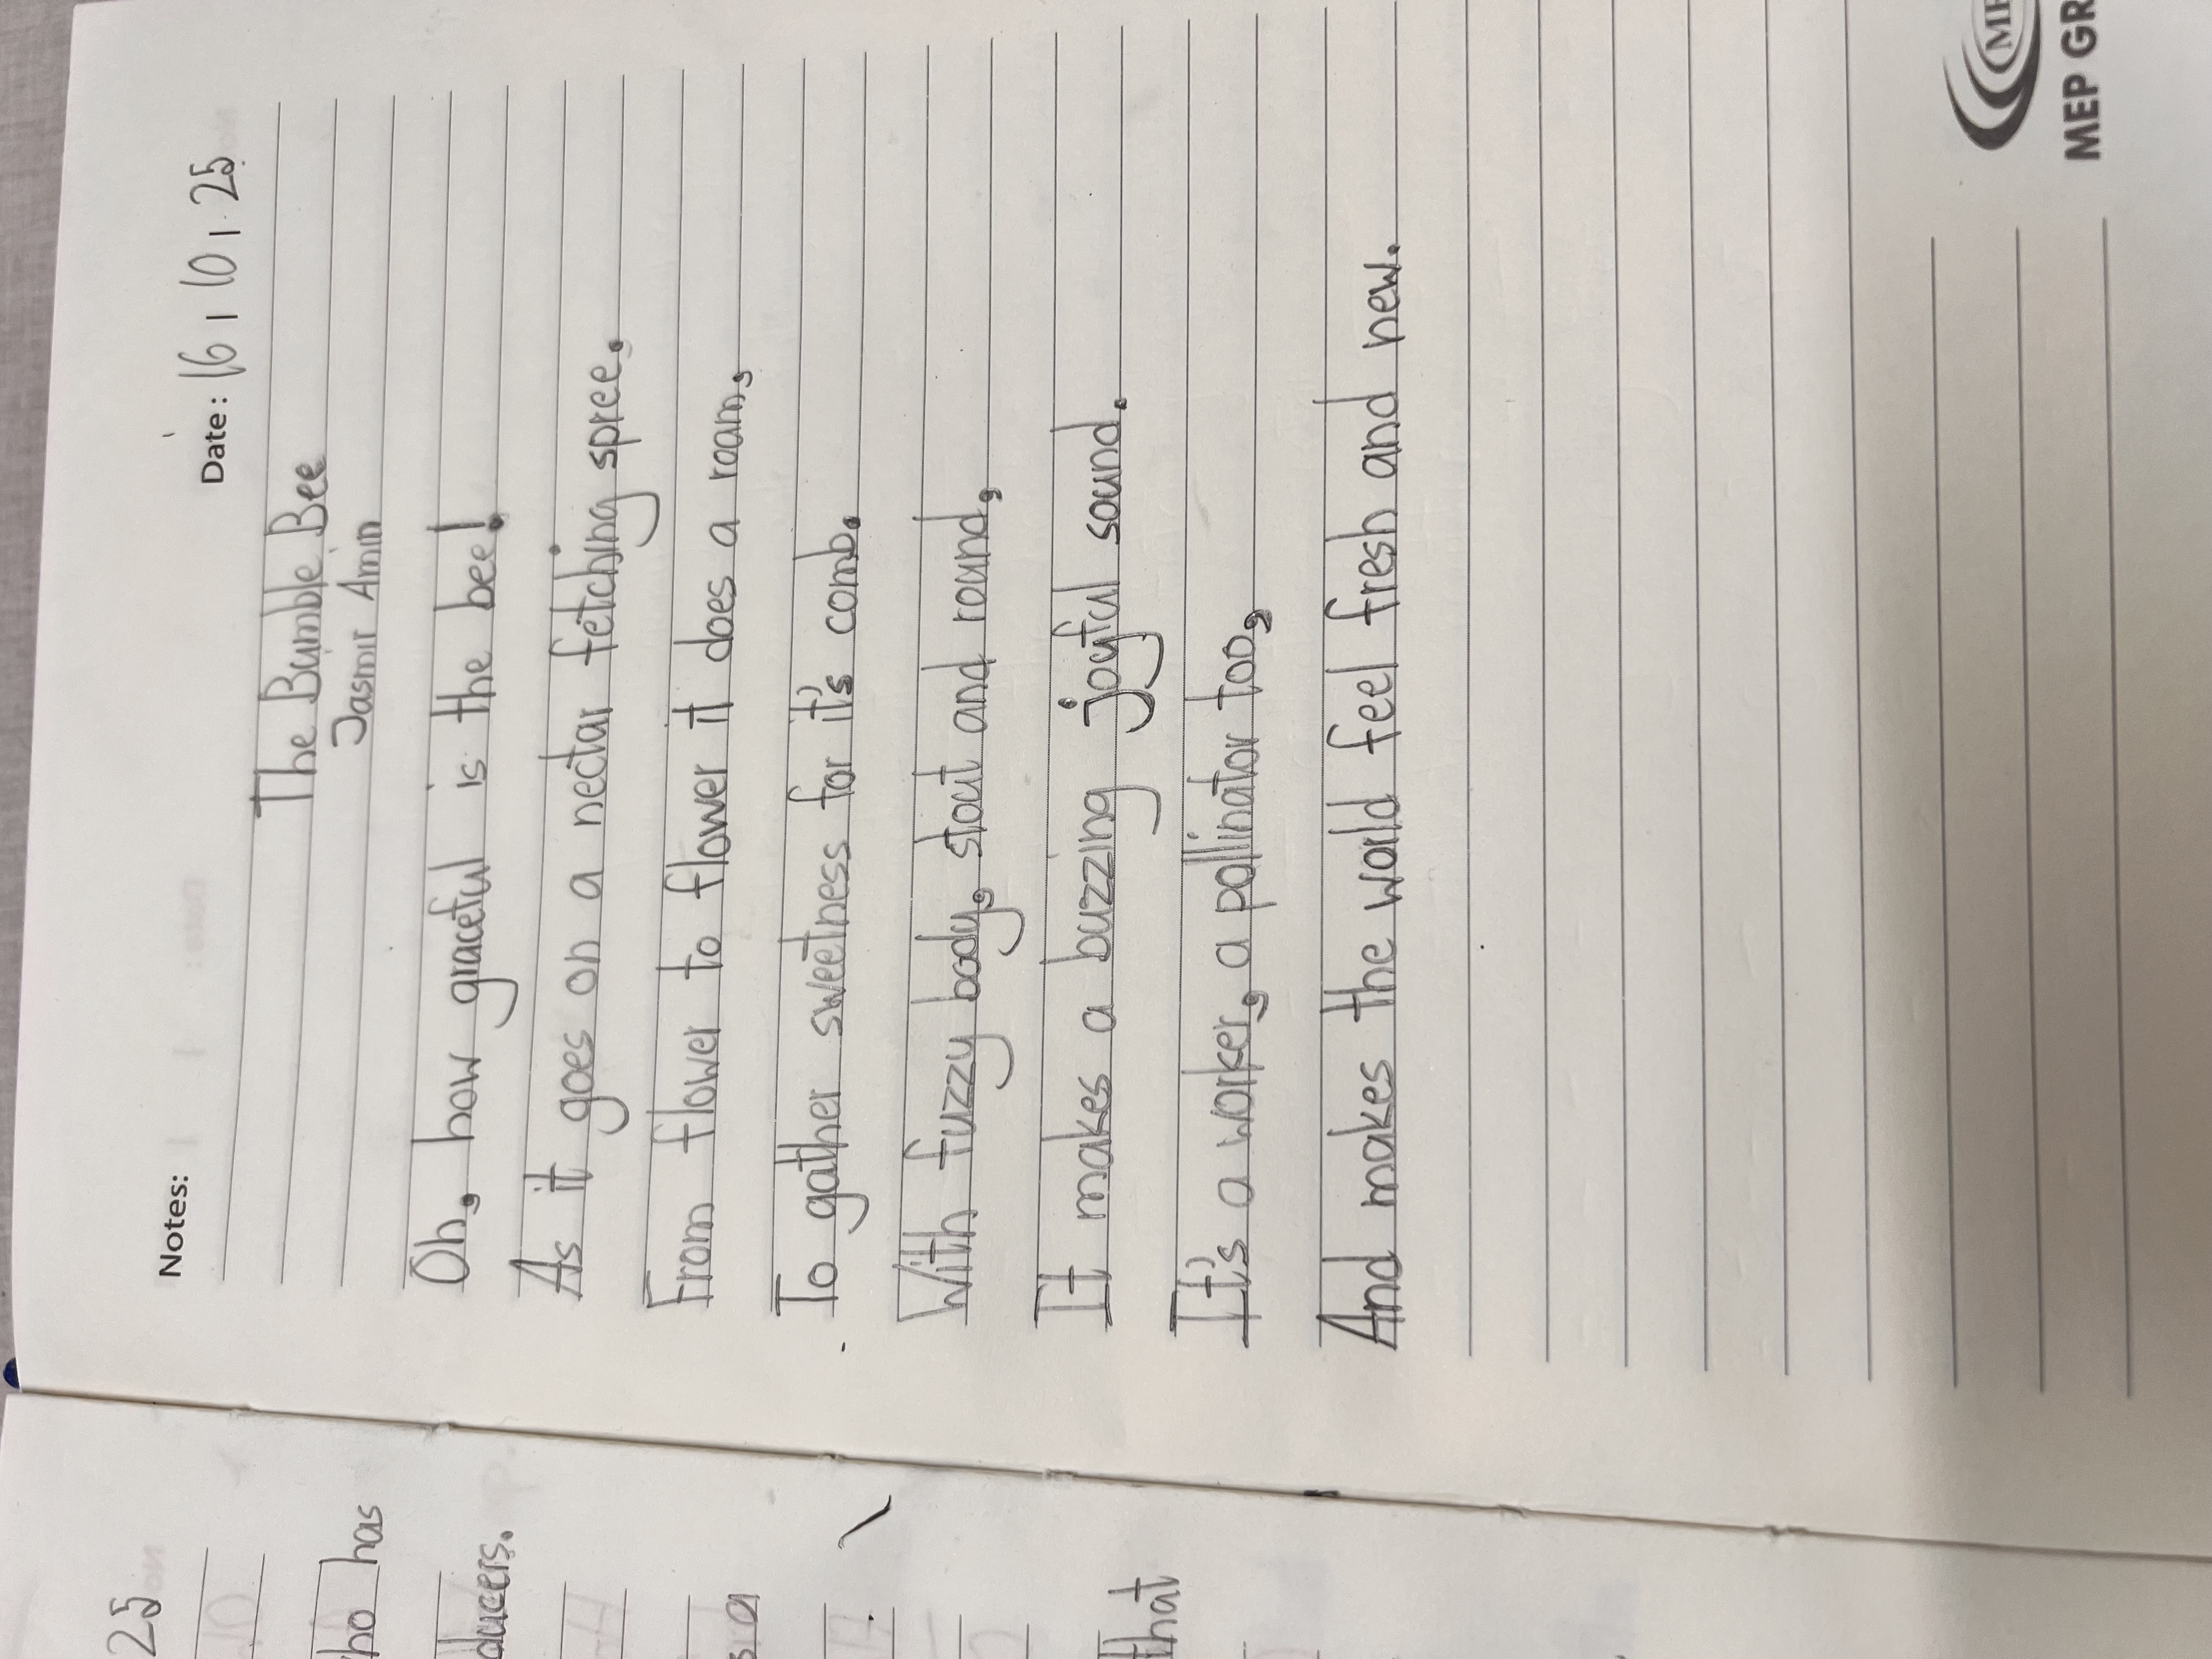 Notes:
Date: 16 / 10 / 25
The Bumble Bee
Jasmir Amin
Oh, how graceful is the bee!
As it goes on a nectar fetching spree.
From flower to flower it does a roam,
To gather sweetness for it's comb.
With fuzzy body, stout and round,
It makes a buzzing joyful sound.
It's a worker, a pollinator too,
And makes the world feel fresh and new.
MEP GR
25
has
that